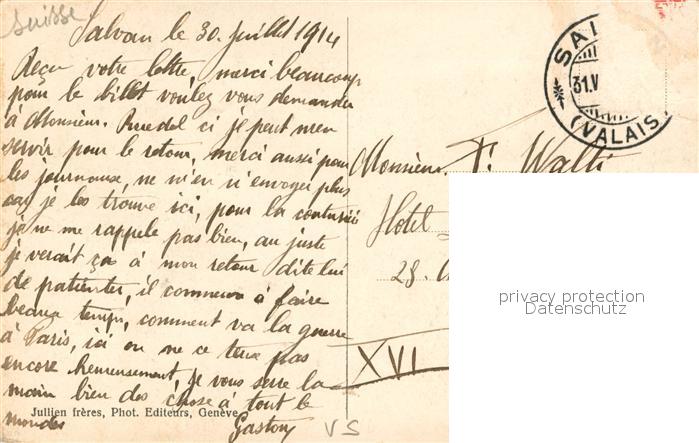 Suisse
Salvan le 30 Juillet 1914
Reçu votre lettre, merci beaucoup
pour le billet voulez vous demander
à Monsieur. Ruedel ci je peut m'en
servir pour le retour, merci aussi pour
les journaux, ne m'en n'envoyer plus
car je les trouve ici, pour la couturière
je ne me rappele pas bien, au juste
je verait ça à mon retour dite lui
de patienter, il commence à faire
beaux temps, comment va la guerre
à Paris, ici on ne ce tue pas
encore heureusement, je vous serre la
main bien des chose à tout le
mondes
Gaston
Jullien frères, Phot. Editeurs, Genève
VS
SAL
31.V
(VALAIS)
Monsieur F. Walti
Hotel
28.
XVI
privacy protection
Datenschutz